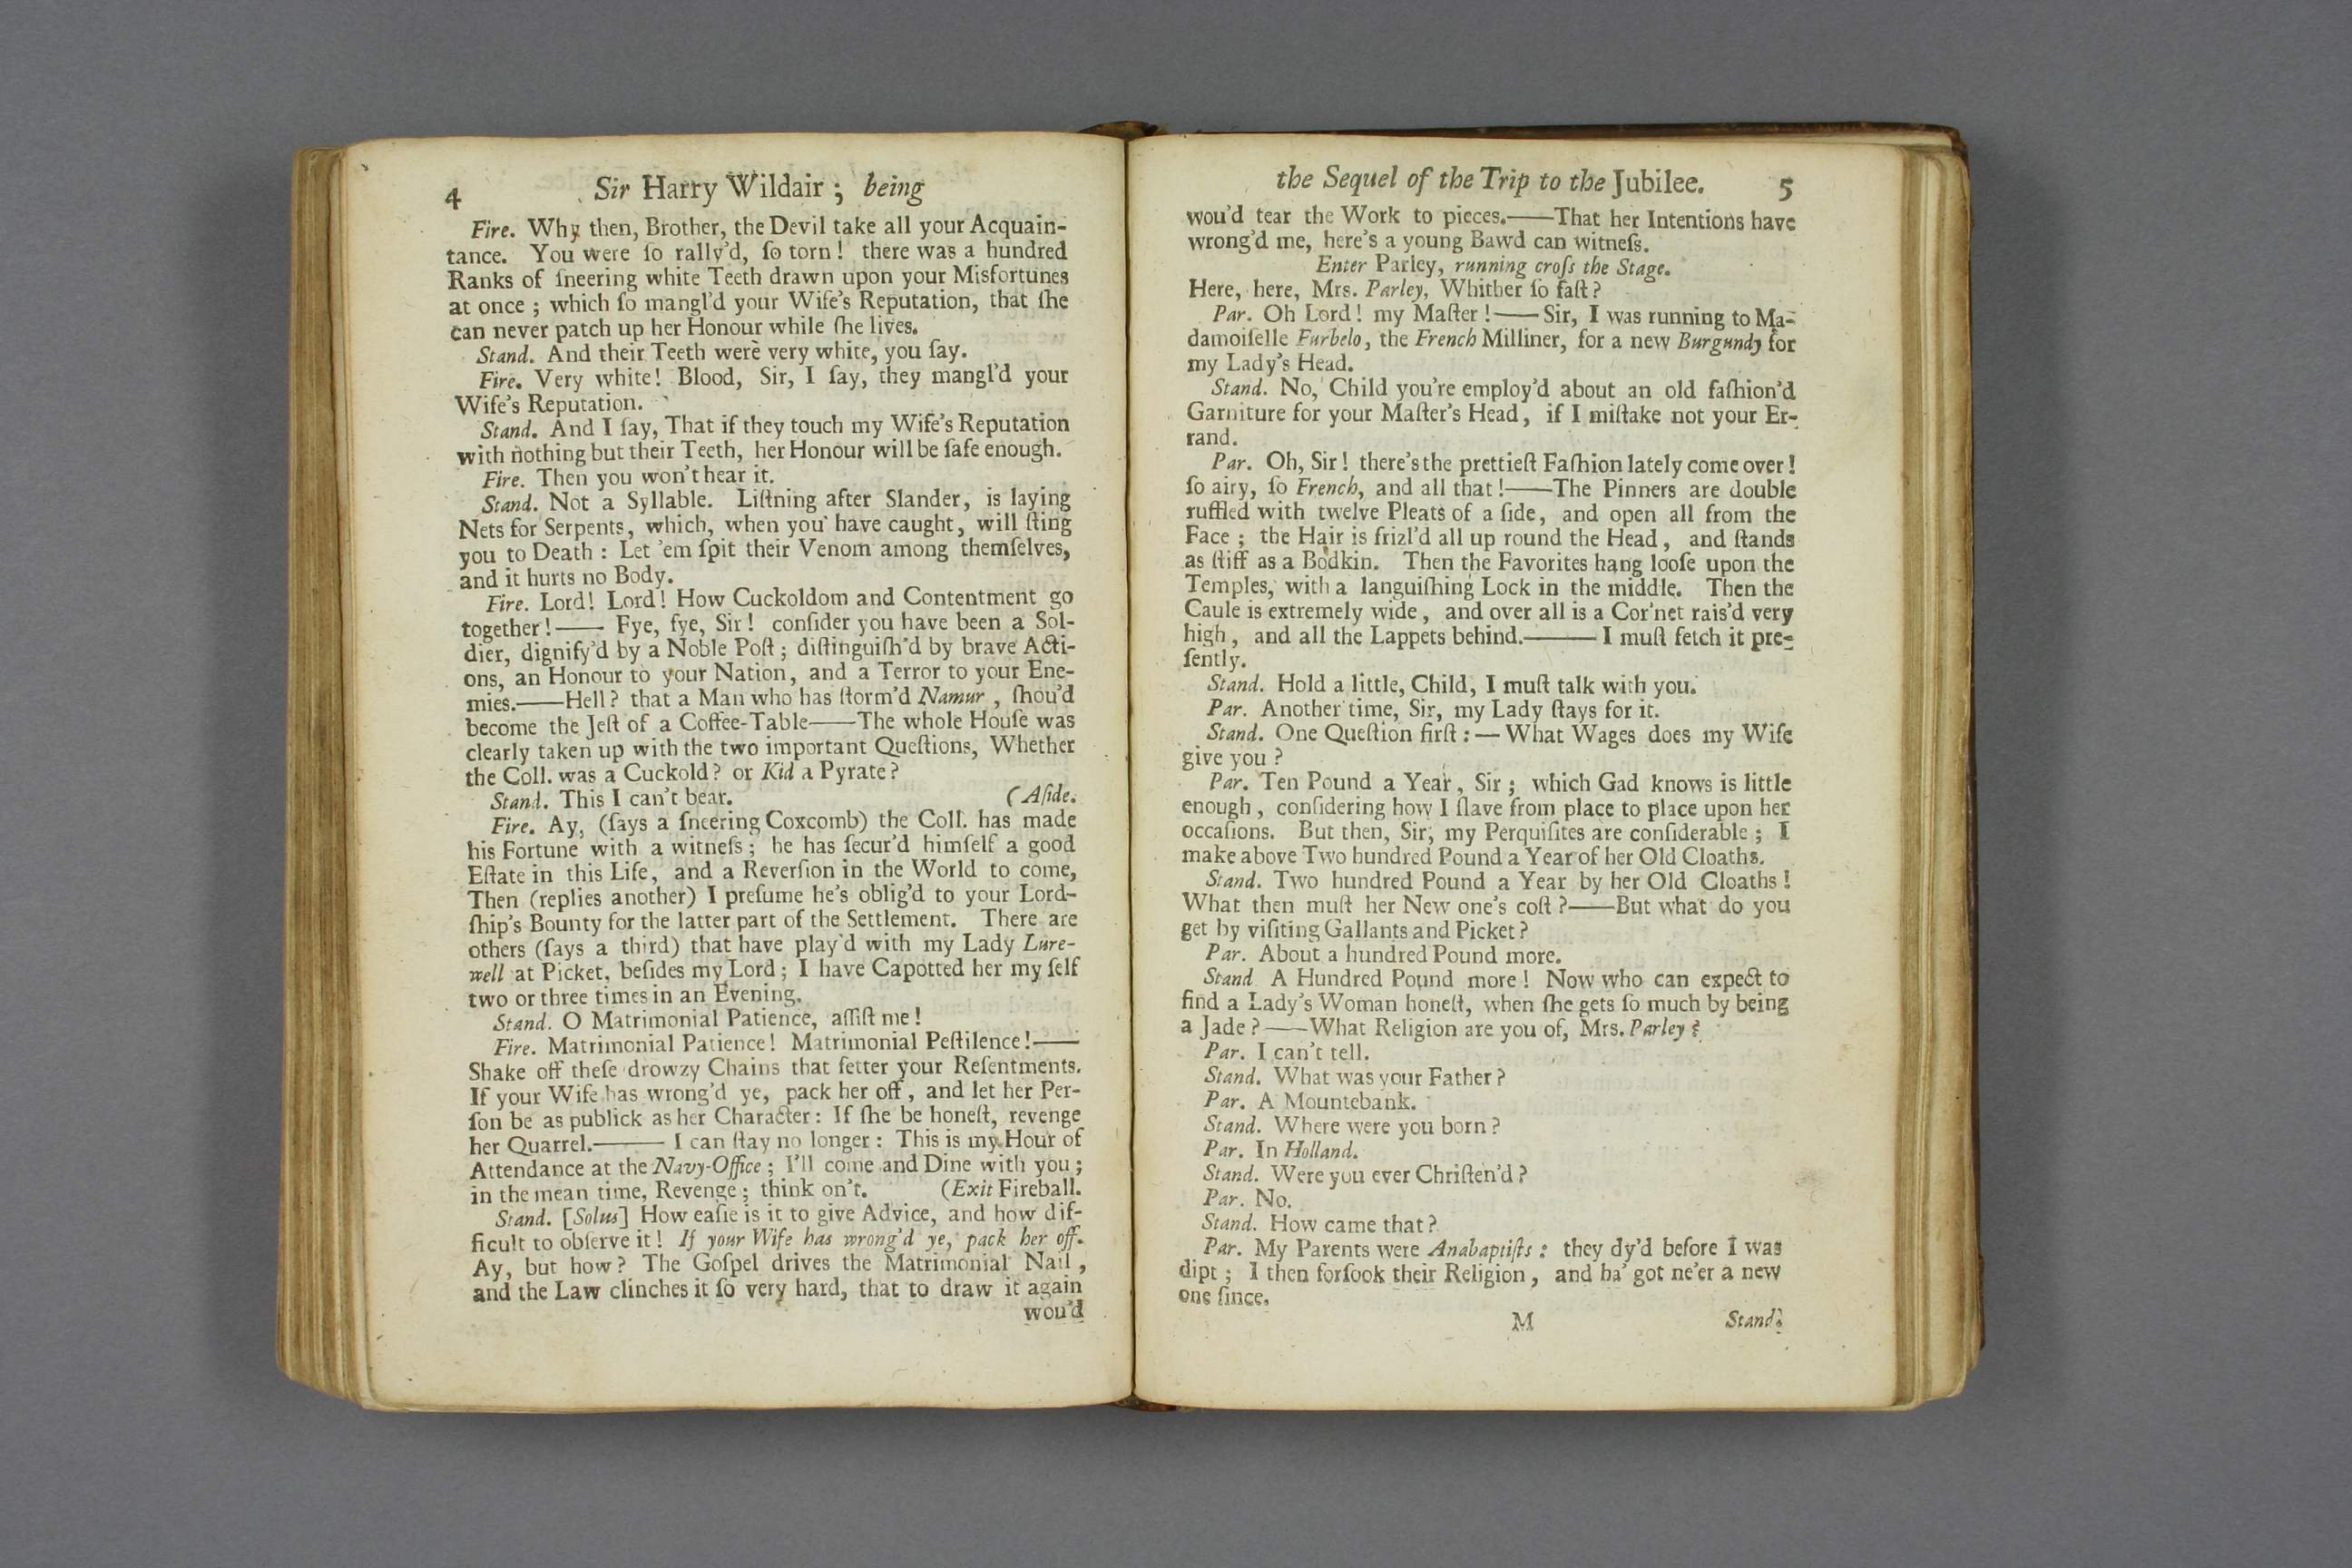 4 Sir Harry Wildair ; being
Fire. Why then, Brother, the Devil take all your Acquain-
tance. You were ſo rally'd, ſo torn! there was a hundred
Ranks of ſneering white Teeth drawn upon your Misfortunes
at once ; which ſo mangl'd your Wife's Reputation, that ſhe
can never patch up her Honour while ſhe lives.
Stand. And their Teeth were very white, you ſay.
Fire. Very white! Blood, Sir, I ſay, they mangl'd your
Wife's Reputation.
Stand. And I ſay, That if they touch my Wife's Reputation
with nothing but their Teeth, her Honour will be ſafe enough.
Fire. Then you won't hear it.
Stand. Not a Syllable. Liſtning after Slander, is laying
Nets for Serpents, which, when you have caught, will ſting
you to Death : Let 'em ſpit their Venom among themſelves,
and it hurts no Body.
Fire. Lord! Lord! How Cuckoldom and Contentment go
together!—— Fye, fye, Sir! conſider you have been a Sol-
dier, dignify'd by a Noble Poſt ; diſtinguiſh'd by brave Acti-
ons, an Honour to your Nation, and a Terror to your Ene-
mies.——Hell? that a Man who has ſtorm'd Namur , ſhou'd
become the Jeſt of a Coffee-Table——The whole Houſe was
clearly taken up with the two important Queſtions, Whether
the Coll. was a Cuckold? or Kid a Pyrate?
Stand. This I can't bear. (Aſide.
Fire. Ay, (ſays a ſneering Coxcomb) the Coll. has made
his Fortune with a witneſs ; he has ſecur'd himſelf a good
Eſtate in this Life, and a Reverſion in the World to come,
Then (replies another) I preſume he's oblig'd to your Lord-
ſhip's Bounty for the latter part of the Settlement. There are
others (ſays a third) that have play'd with my Lady Lure-
well at Picket, beſides my Lord ; I have Capotted her my ſelf
two or three times in an Evening.
Stand. O Matrimonial Patience, aſſiſt me!
Fire. Matrimonial Patience! Matrimonial Peſtilence!——
Shake off theſe drowzy Chains that fetter your Reſentments.
If your Wife has wrong'd ye, pack her off, and let her Per-
ſon be as publick as her Character : If ſhe be honeſt, revenge
her Quarrel.—— I can ſtay no longer : This is my Hour of
Attendance at the Navy-Office ; I'll come and Dine with you ;
in the mean time, Revenge ; think on't. (Exit Fireball.
Stand. [Solus] How eaſie is it to give Advice, and how dif-
ficult to obſerve it! If your Wife has wrong'd ye, pack her off.
Ay, but how? The Goſpel drives the Matrimonial Nail ,
and the Law clinches it ſo very hard, that to draw it again
wou'd
the Sequel of the Trip to the Jubilee. 5
wou'd tear the Work to pieces.——That her Intentions have
wrong'd me, here's a young Bawd can witneſs.
Enter Parley, running croſs the Stage.
Here, here, Mrs. Parley, Whither ſo faſt?
Par. Oh Lord! my Maſter!——Sir, I was running to Ma-
damoiſelle Furbelo, the French Milliner, for a new Burgundy for
my Lady's Head.
Stand. No, Child you're employ'd about an old faſhion'd
Garniture for your Maſter's Head, if I miſtake not your Er-
rand.
Par. Oh, Sir! there's the prettieſt Faſhion lately come over!
ſo airy, ſo French, and all that!——The Pinners are double
ruffled with twelve Pleats of a ſide, and open all from the
Face ; the Hair is frizl'd all up round the Head, and ſtands
as ſtiff as a Bodkin. Then the Favorites hang looſe upon the
Temples, with a languiſhing Lock in the middle. Then the
Caule is extremely wide, and over all is a Cor'net rais'd very
high, and all the Lappets behind.——I muſt fetch it pre-
ſently.
Stand. Hold a little, Child, I muſt talk with you.
Par. Another time, Sir, my Lady ſtays for it.
Stand. One Queſtion firſt :—What Wages does my Wife
give you ?
Par. Ten Pound a Year, Sir ; which Gad knows is little
enough, conſidering how I ſlave from place to place upon her
occaſions. But then, Sir, my Perquiſites are conſiderable ; I
make above Two hundred Pound a Year of her Old Cloaths.
Stand. Two hundred Pound a Year by her Old Cloaths!
What then muſt her New one's coſt?——But what do you
get by viſiting Gallants and Picket?
Par. About a hundred Pound more.
Stand A Hundred Pound more! Now who can expect to
find a Lady's Woman honeſt, when ſhe gets ſo much by being
a Jade?——What Religion are you of, Mrs. Parley?
Par. I can't tell.
Stand. What was your Father?
Par. A Mountebank.
Stand. Where were you born?
Par. In Holland.
Stand. Were you ever Chriſten'd?
Par. No.
Stand. How came that?
Par. My Parents were Anabaptiſts : they dy'd before I was
dipt ; I then forſook their Religion, and ha' got ne'er a new
one ſince.
M Stand.